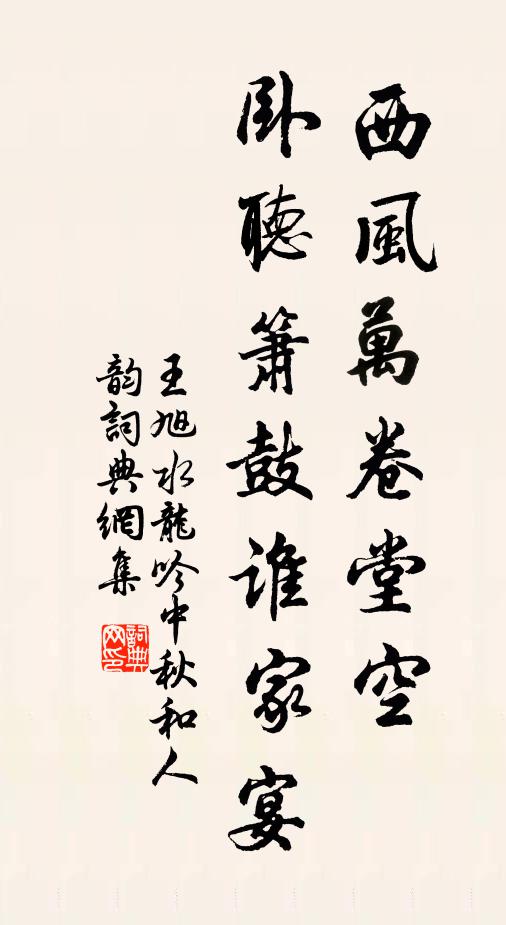 西風萬卷堂空
卧聽簫鼓誰家宴
王旭水龍吟中秋和人
韵詞典網集
詞典
网印